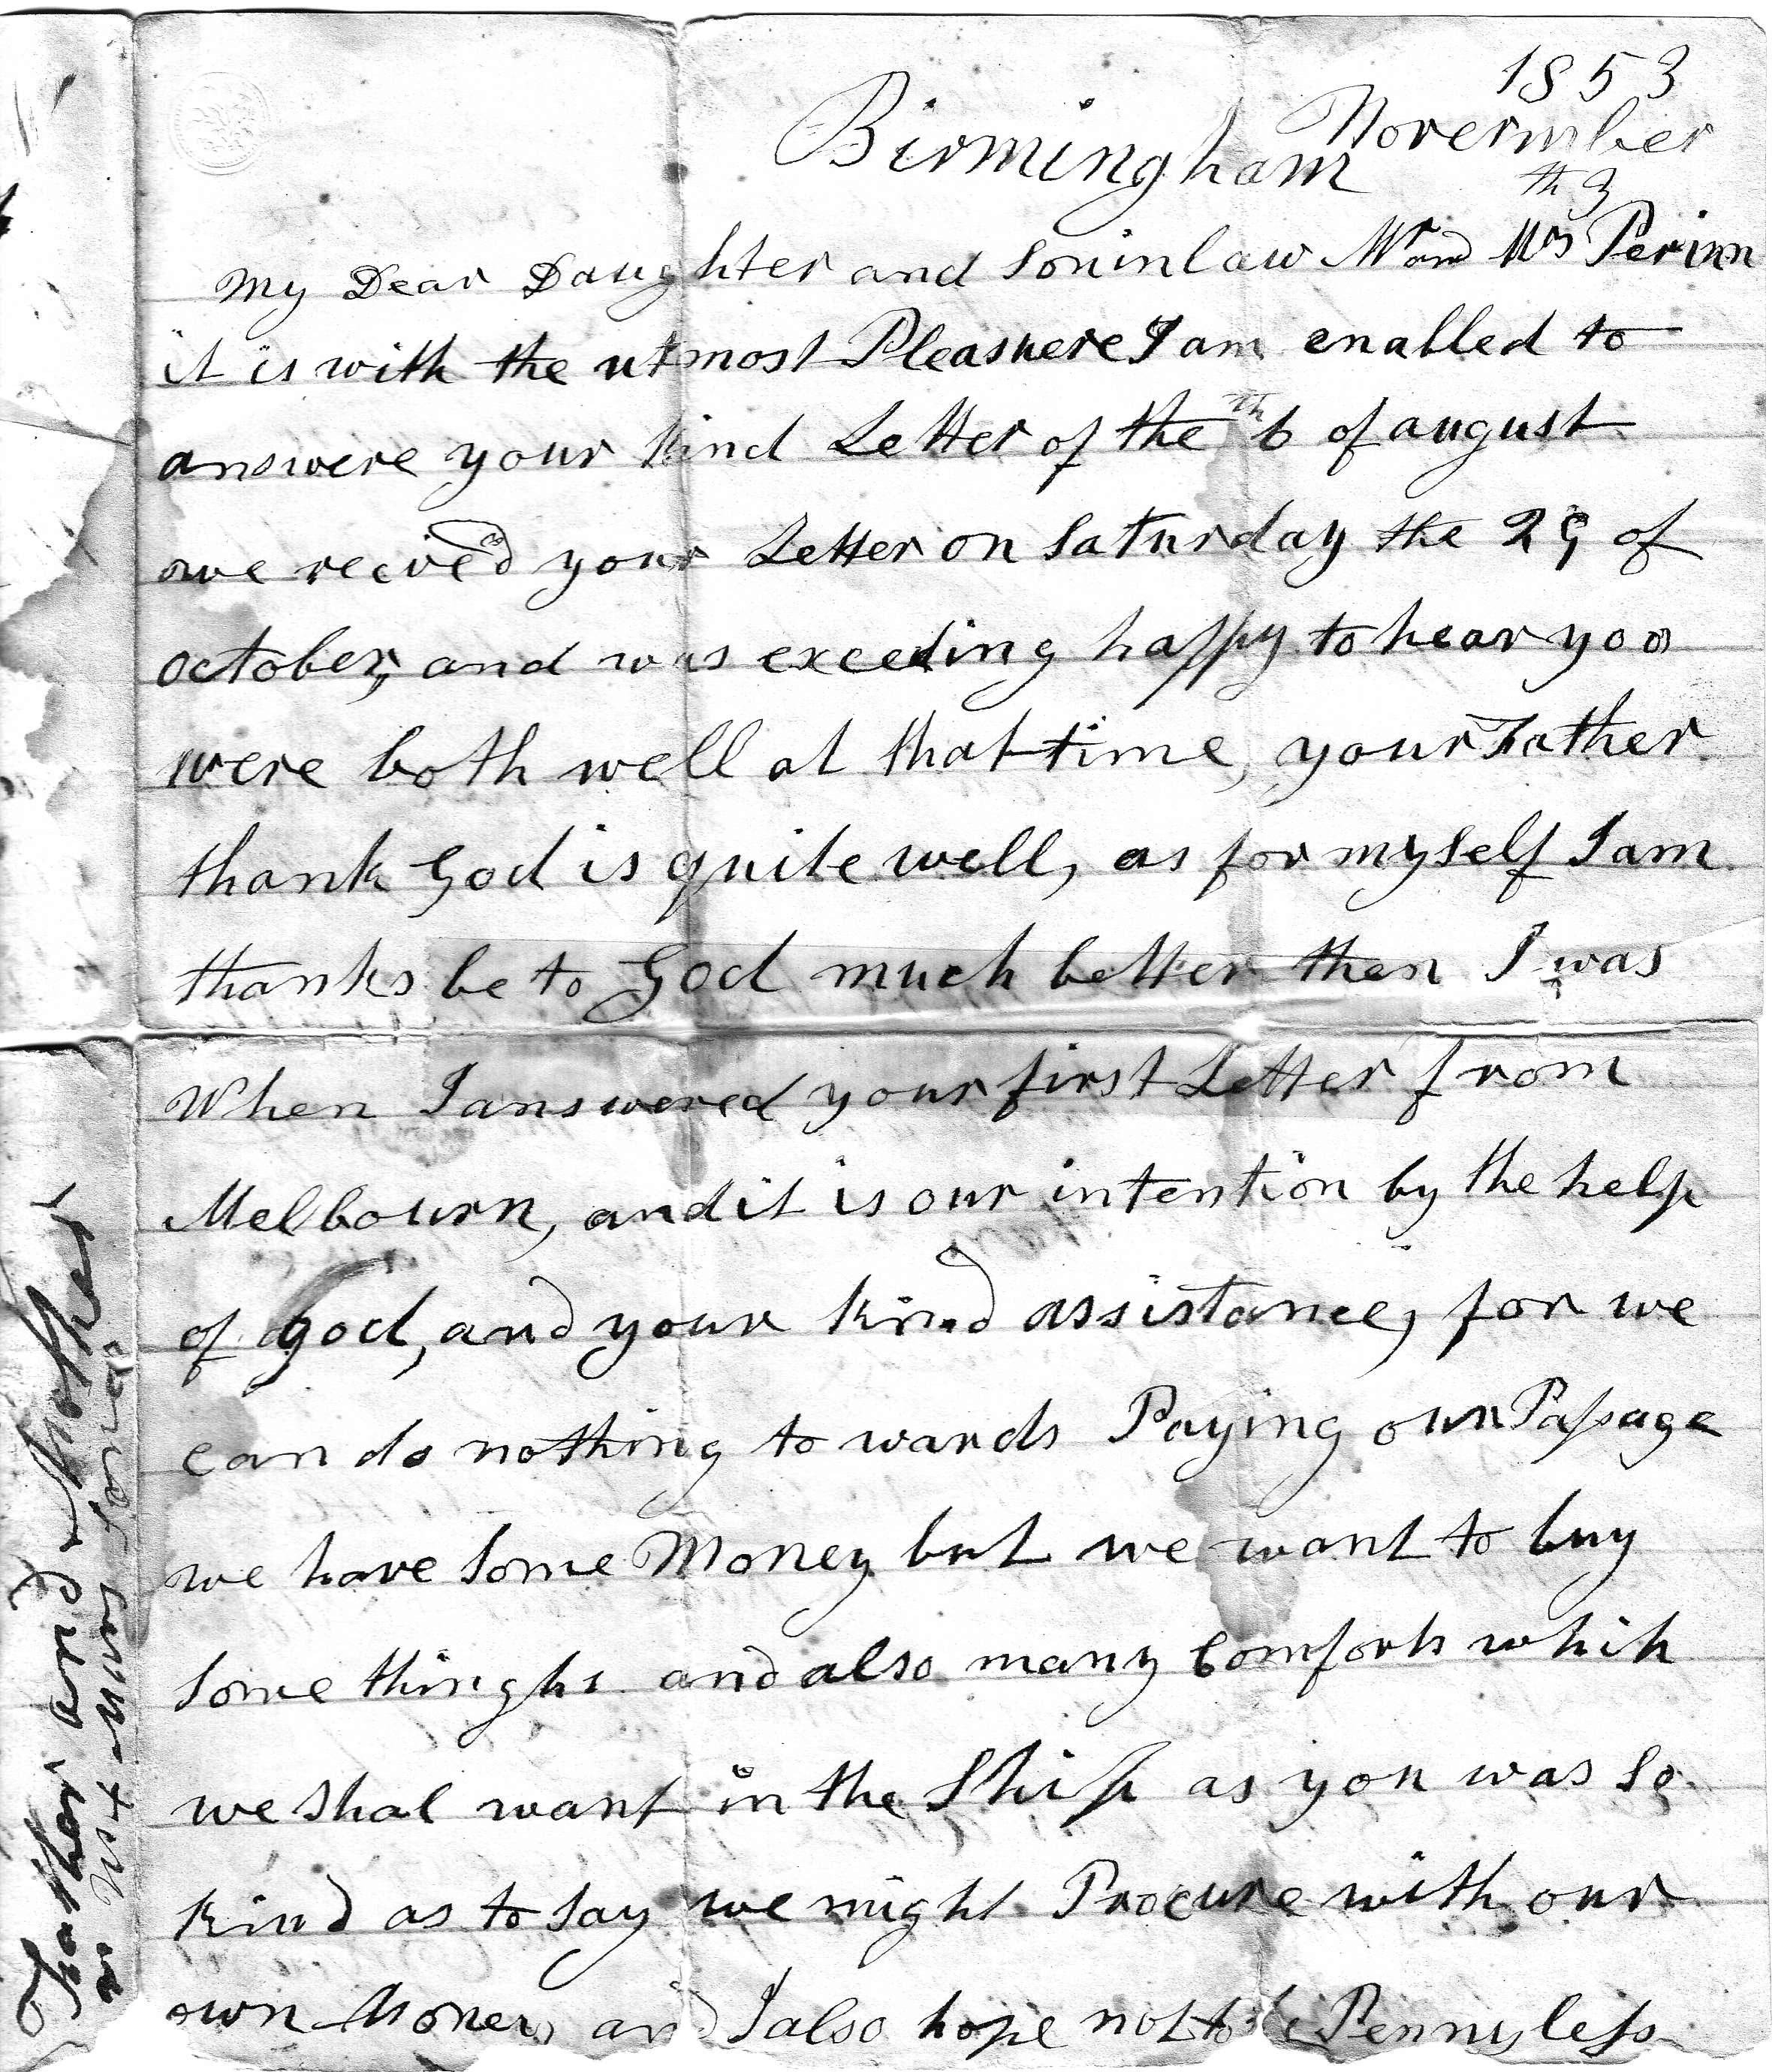 1853
Birmingham November
th 3
My Dear Daughter and Soninlaw Mr and Mrs Perinn
it is with the utmost Pleasuere I am enabled to
answere your kind Letter of the th 6 of august
we recived your Letter on Saturday the 29 of
october, and was exceeding happy to hear yoo
were both well at that time, your Father
thank God is quite well, as for myself I am
thanks be to God much better then I was
When I answered your first Letter from
Melbourn, and it is our intention by the help
of god, and your kind assistance, for we
can do nothing to wards Paying our Passage
we have Some Money but we want to buy
Some thinghs and also many Comforts which
we shal want in the Ship as you was So
kind as to Say we might Procure with our
own Money and I also hope not to be Pennyless
Father and Mother